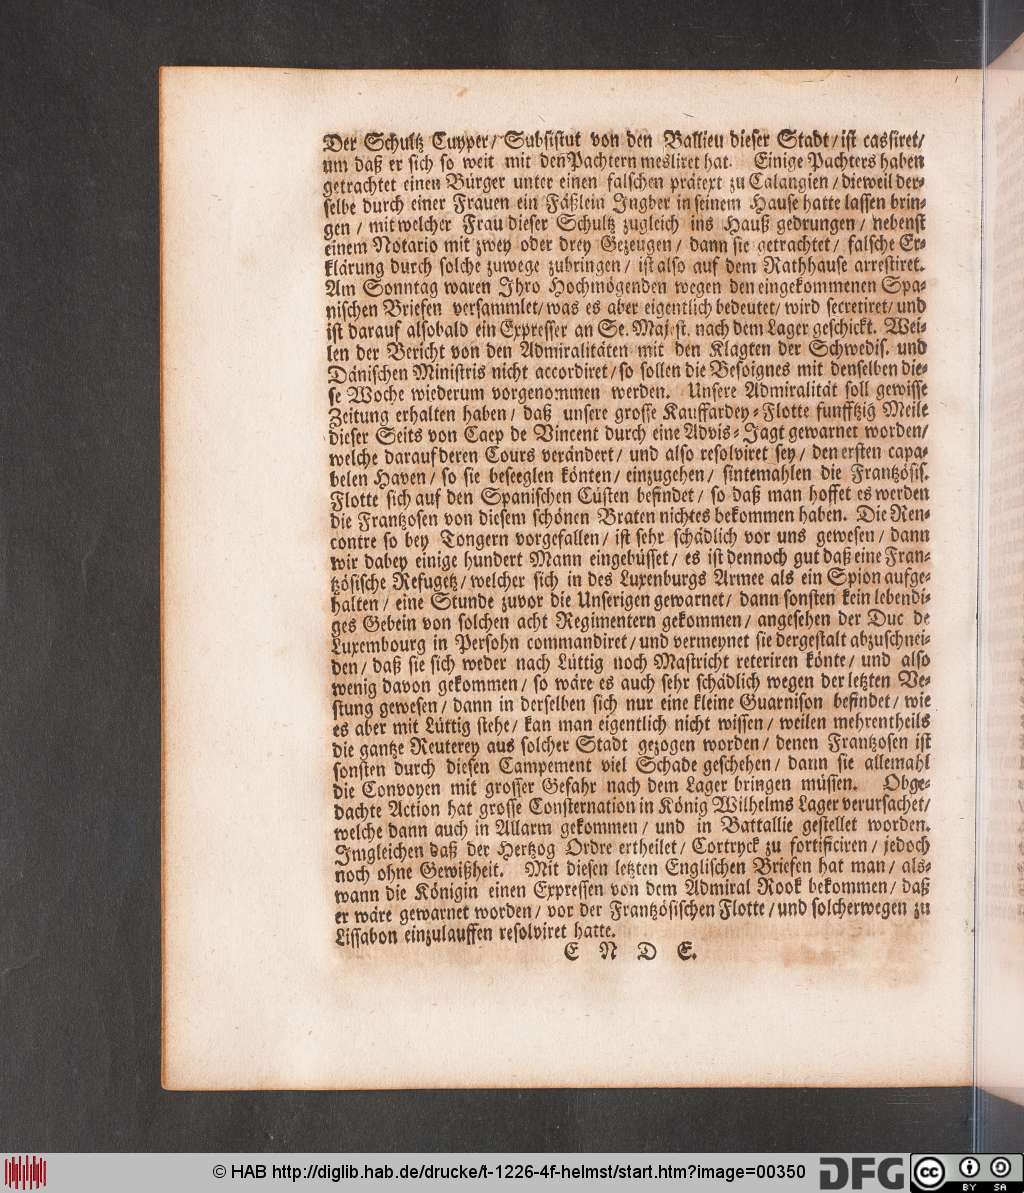 Der Schultz Cuyper/ Subsistut von den Ballieu dieser Stadt/ ist cassiret/
um daß er sich so weit mit den Pachtern mesliret hat. Einige Pachters haben
getrachtet einen Bürger unter einen falschen prätext zu Calangien/ dieweil der-
selbe durch einer Frauen ein Fäßlein Ingber in seinem Hause hatte lassen brin-
gen/ mit welcher Frau dieser Schultz zugleich ins Hauß gedrungen/ nebenst
einem Notario mit zwey oder drey Gezeugen/ dann sie getrachtet/ falsche Er-
klärung durch solche zuwege zubringen/ ist also auf dem Rathhause arrestiret.
Am Sonntag waren Ihro Hochmögenden wegen den eingekommenen Spa-
nischen Briefen versammlet/ was es aber eigentlich bedeutet/ wird secretiret/ und
ist darauf alsobald ein Expresser an Se. Majest. nach dem Lager geschickt. Wei-
len der Bericht von den Admiralitäten mit den Klagten der Schwedis. und
Dänischen Ministris nicht accordiret/ so sollen die Besoignes mit denselben die-
se Woche wiederum vorgenommen werden. Unsere Admiralität soll gewisse
Zeitung erhalten haben/ daß unsere grosse Kauffardey-Flotte funfftzig Meile
dieser Seits von Caep de Vincent durch eine Advis-Jagt gewarnet worden/
welche darauf deren Cours verändert/ und also resolviret sey/ den ersten capa-
belen Haven/ so sie beseeglen könten/ einzugehen/ sintemahlen die Frantzösis.
Flotte sich auf den Spanischen Cüsten befindet/ so daß man hoffet es werden
die Frantzosen von diesem schönen Braten nichtes bekommen haben. Die Ren-
contre so bey Tongern vorgefallen/ ist sehr schädlich vor uns gewesen/ dann
wir dabey einige hundert Mann eingebüsset/ es ist dennoch gut daß eine Fran-
tzösische Refugetz/ welcher sich in des Luxenburgs Armee als ein Spion aufge-
halten/ eine Stunde zuvor die Unserigen gewarnet/ dann sonsten kein lebendi-
ges Gebein von solchen acht Regimentern gekommen/ angesehen der Duc de
Luxembourg in Persohn commandiret/ und vermeynet sie dergestalt abzuschnei-
den/ daß sie sich weder nach Lüttig noch Mastricht reteriren könte/ und also
wenig davon gekommen/ so wäre es auch sehr schädlich wegen der letzten Ve-
stung gewesen/ dann in derselben sich nur eine kleine Guarnison befindet/ wie
es aber mit Lüttig stehe/ kan man eigentlich nicht wissen/ weilen mehrentheils
die gantze Reuterey aus solcher Stadt gezogen worden/ denen Frantzosen ist
sonsten durch diesen Campement viel Schade geschehen/ dann sie allemahl
die Convoyen mit grosser Gefahr nach dem Lager bringen müssen. Obge-
dachte Action hat grosse Consternation in König Wilhelms Lager verursachet/
welche dann auch in Allarm gekommen/ und in Battallie gestellet worden.
Imgleichen daß der Hertzog Ordre ertheilet/ Cortryck zu fortificiren/ jedoch
noch ohne Gewißheit. Mit diesen letzten Englischen Briefen hat man/ als-
wann die Königin einen Expressen von dem Admiral Rook bekommen/ daß
er wäre gewarnet worden/ vor der Frantzösischen Flotte/ und solcherwegen zu
Lissabon einzulauffen resolviret hatte.
E N D E.
© HAB http://diglib.hab.de/drucke/t-1226-4f-helmst/start.htm?image=00350 DFG cc BY SA